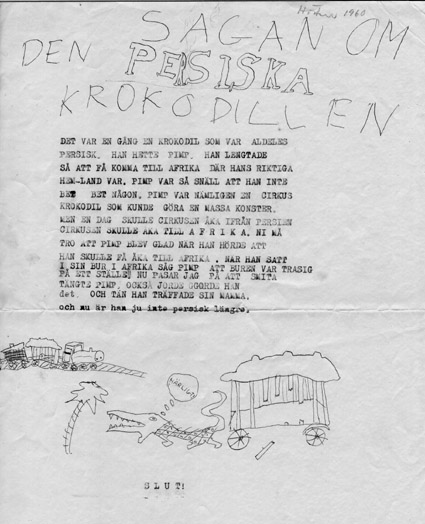 Hösten 1960
SAGAN OM
DEN PERSISKA
KROKODILLEN
DET VAR EN GÅNG EN KROKODIL SOM VAR ALDELES
PERSISK. HAN HETTE PIMP. HAN LENGTADE
SÅ ATT FÅ KOMMA TILL AFRIKA DÄR HANS RIKTIGA
HEM-LAND VAR. PIMP VAR SÅ SNÄLL ATT HAN INTE
BET BET NÅGON. PIMP VAR NÄMLIGEN EN CIRKUS
KROKODIL SOM KUNDE GÖRA EN MASSA KONSTER.
MEN EN DAG SKULLE CIRKUSEN ÅKA IFRÅN PERSIEN
CIRKUSEN SKULLE ÅKA TILL A F R I K A. NI MÅ
TRO ATT PIMP BLEV GLAD NÄR HAN HÖRDE ATT
HAN SKULLE FÅ ÅKA TILL AFRIKA . NÄR HAN SATT
I SIN BUR I AFRIKA SÅG PIMP ATT BUREN VAR TRASIG
PÅ ETT STÄLLE. NU PASAR JAG PÅ ATT SMITA
TÄNGTE PIMP, OCKSÅ JORDE GGORDE HAN
det. OCH TÄN HAN TRÄFFADE SIN MAMMA.
och nu är han ju inte persisk längre.
HÄRLIGT
S L U T!